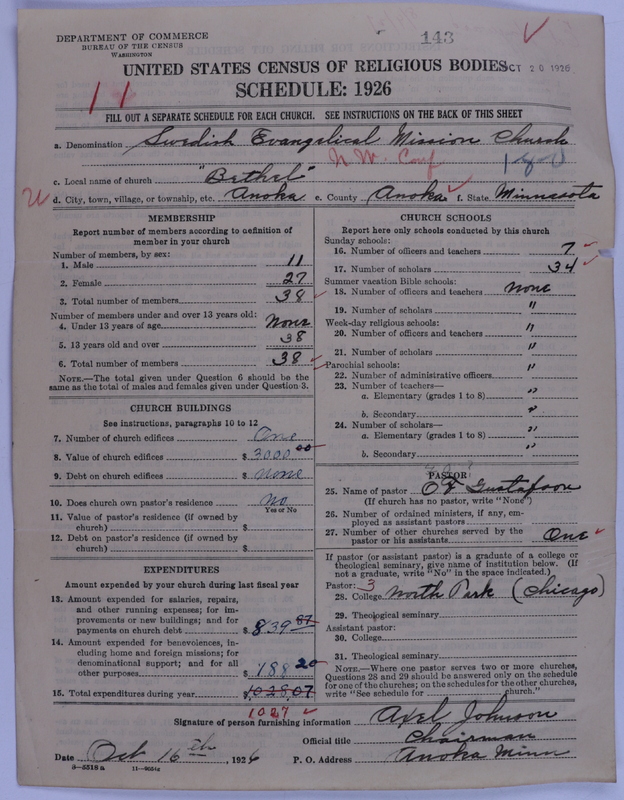 DEPARTMENT OF COMMERCE
BUREAU OF THE CENSUS
WASHINGTON
143
OCT 20 1926
UNITED STATES CENSUS OF RELIGIOUS BODIES
SCHEDULE: 1926
11
FILL OUT A SEPARATE SCHEDULE FOR EACH CHURCH. SEE INSTRUCTIONS ON THE BACK OF THIS SHEET
a. Denomination Swedish Evangelical Mission Church
N.W. Conf 180
c. Local name of church "Bethel"
d. City, town, village, or township, etc. Anoka e. County Anoka f. State Minnesota
MEMBERSHIP
Report number of members according to definition of
member in your church
Number of members, by sex:
1. Male 11
2. Female 27
3. Total number of members 38
Number of members under and over 13 years old:
4. Under 13 years of age None
5. 13 years old and over 38
6. Total number of members 38
NOTE.—The total given under Question 6 should be the
same as the total of males and females given under Question 3.
CHURCH BUILDINGS
See instructions, paragraphs 10 to 12
7. Number of church edifices One
8. Value of church edifices $ 3000 00
9. Debt on church edifices $ None
10. Does church own pastor's residence No
Yes or No
11. Value of pastor's residence (if owned by
church) $
12. Debt on pastor's residence (if owned by
church) $
EXPENDITURES
Amount expended by your church during last fiscal year
13. Amount expended for salaries, repairs,
and other running expenses; for im-
provements or new buildings; and for
payments on church debt $ 839 87
14. Amount expended for benevolences, in-
cluding home and foreign missions; for
denominational support; and for all
other purposes $ 188 20
15. Total expenditures during year 1028 07
1027
CHURCH SCHOOLS
Report here only schools conducted by this church
Sunday schools:
16. Number of officers and teachers 7
17. Number of scholars 34
Summer vacation Bible schools:
18. Number of officers and teachers None
19. Number of scholars "
Week-day religious schools:
20. Number of officers and teachers "
21. Number of scholars "
Parochial schools:
22. Number of administrative officers "
23. Number of teachers—
a. Elementary (grades 1 to 8) "
b. Secondary "
24. Number of scholars—
a. Elementary (grades 1 to 8) "
b. Secondary "
PASTOR
25. Name of pastor Gustafson
(If church has no pastor, write "None")
26. Number of ordained ministers, if any, em-
ployed as assistant pastors
27. Number of other churches served by the
pastor or his assistants One
If pastor (or assistant pastor) is a graduate of a college or
theological seminary, give name of institution below. (If
not a graduate, write "No" in the space indicated.)
Pastor: 3
28. College North Park (Chicago)
29. Theological seminary
Assistant pastor:
30. College
31. Theological seminary
NOTE.—Where one pastor serves two or more churches,
Questions 28 and 29 should be answered only on the schedule
for one of the churches; on the schedules for the other churches,
write "See schedule for church."
Signature of person furnishing information Axel Johnson
Official title Chairman
Date Oct 16th, 1926 P. O. Address Anoka Minn